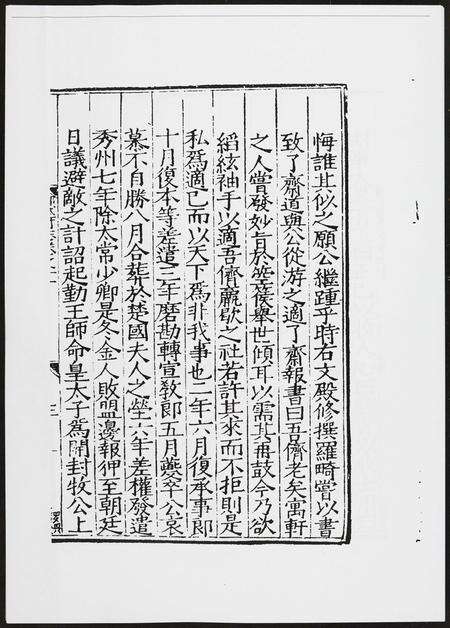 悔誰其似之願公繼踵乎時右文殿修撰羅畸嘗以書
致了齋道與公從游之適了齋報書曰吾儕老矣寓軒
之人嘗發妙音於箜篌舉世傾耳以需其再鼓今乃欲
縚絃袖手以適吾儕麤歇之社若許其求而不拒則是
私爲適已而以天下爲非我事也二年六月復承事郎
十月復本等差遣三年磨勘轉宣教郎五月燕卒公哀
慕不自勝八月合葬於楚國夫人之塋六年差權發遣
秀州七年除太常少卿是冬金人敗盟邊報狎至朝廷
日議避敵之計詔起勤王師命皇太子爲開封牧公上
三